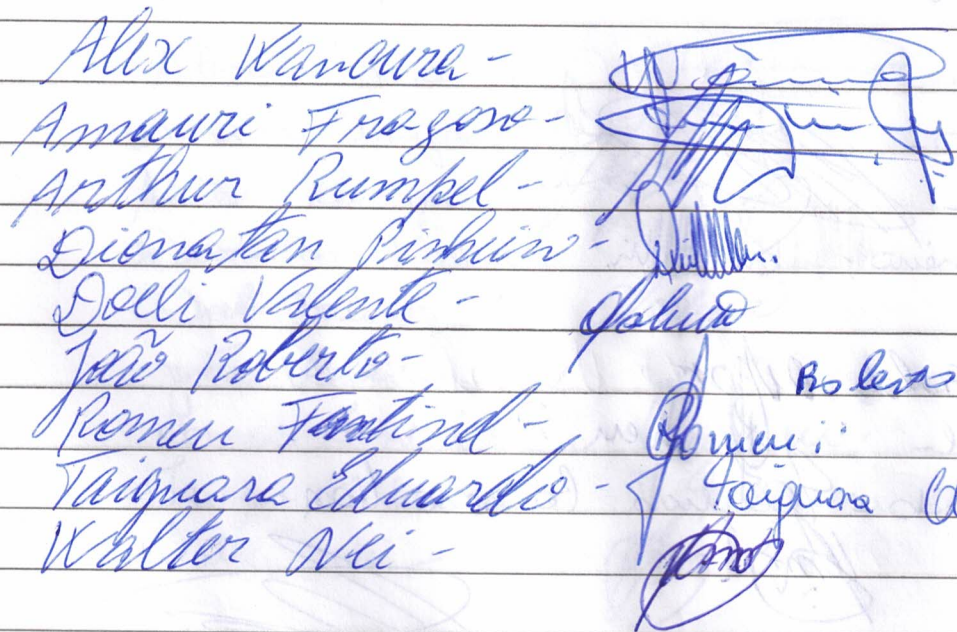 Alex Wanoura -
Amauri Fragoso -
Arthur Rumpel -
Dionatan Pinheiro -
Doeli Valente -
João Roberto - Roberto
Romeu Fantinel - Romeu
Taiguara Eduardo - Taiguara
Walter Nei -